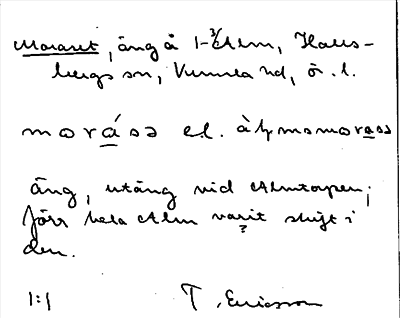 Moraset, äng å 1-3/4 Alm, Halls-
bergs sn, Kumla hd, ö. l.
moråsə el. àḷmsmorasə
Äng, utäng vid Almtorpen;
förr hela Alm varit skift i
den.
1:1 T. Ericsson